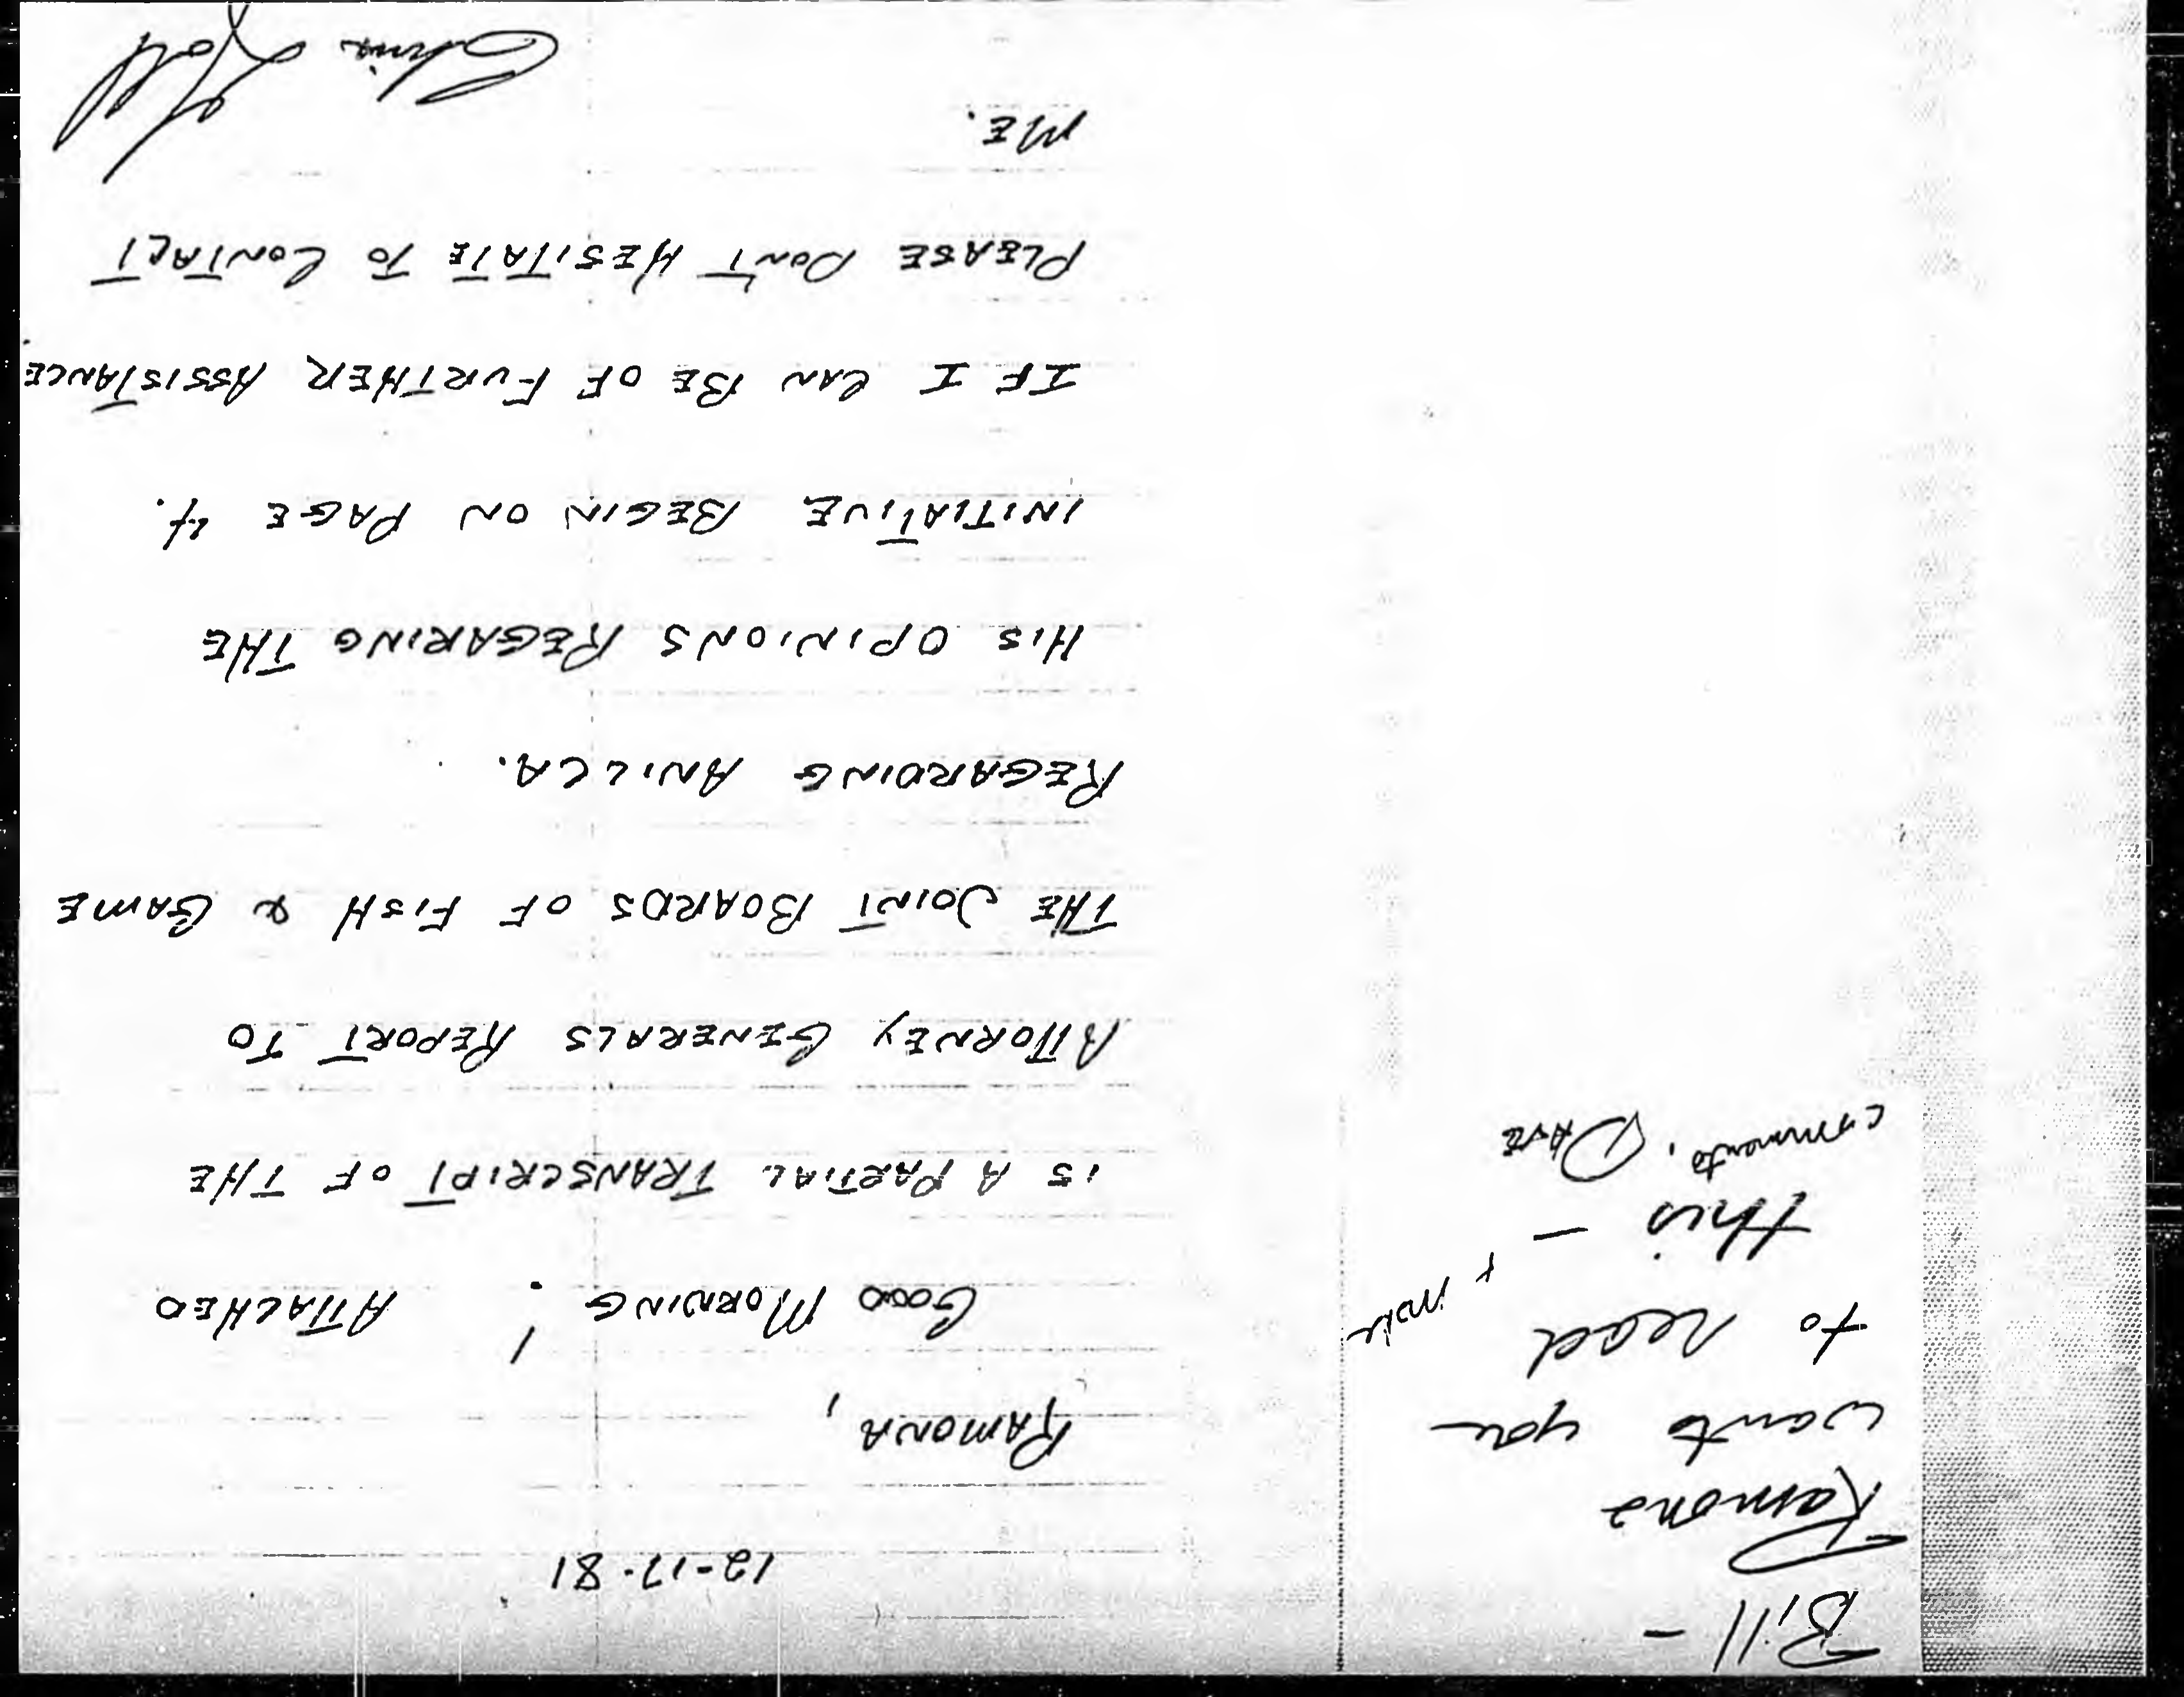 Bill -
Ramona
wants you
to read
this - & make
comments. Dave
12-17-81
Ramona,
Good Morning! Attached
is a partial transcript of the
Attorney Generals report to
the Joint Boards of Fish & Game
regarding ANILCA.
His opinions regaring the
initiative begin on page 4.
If I can be of further assistance
please don't hesitate to contact
me.